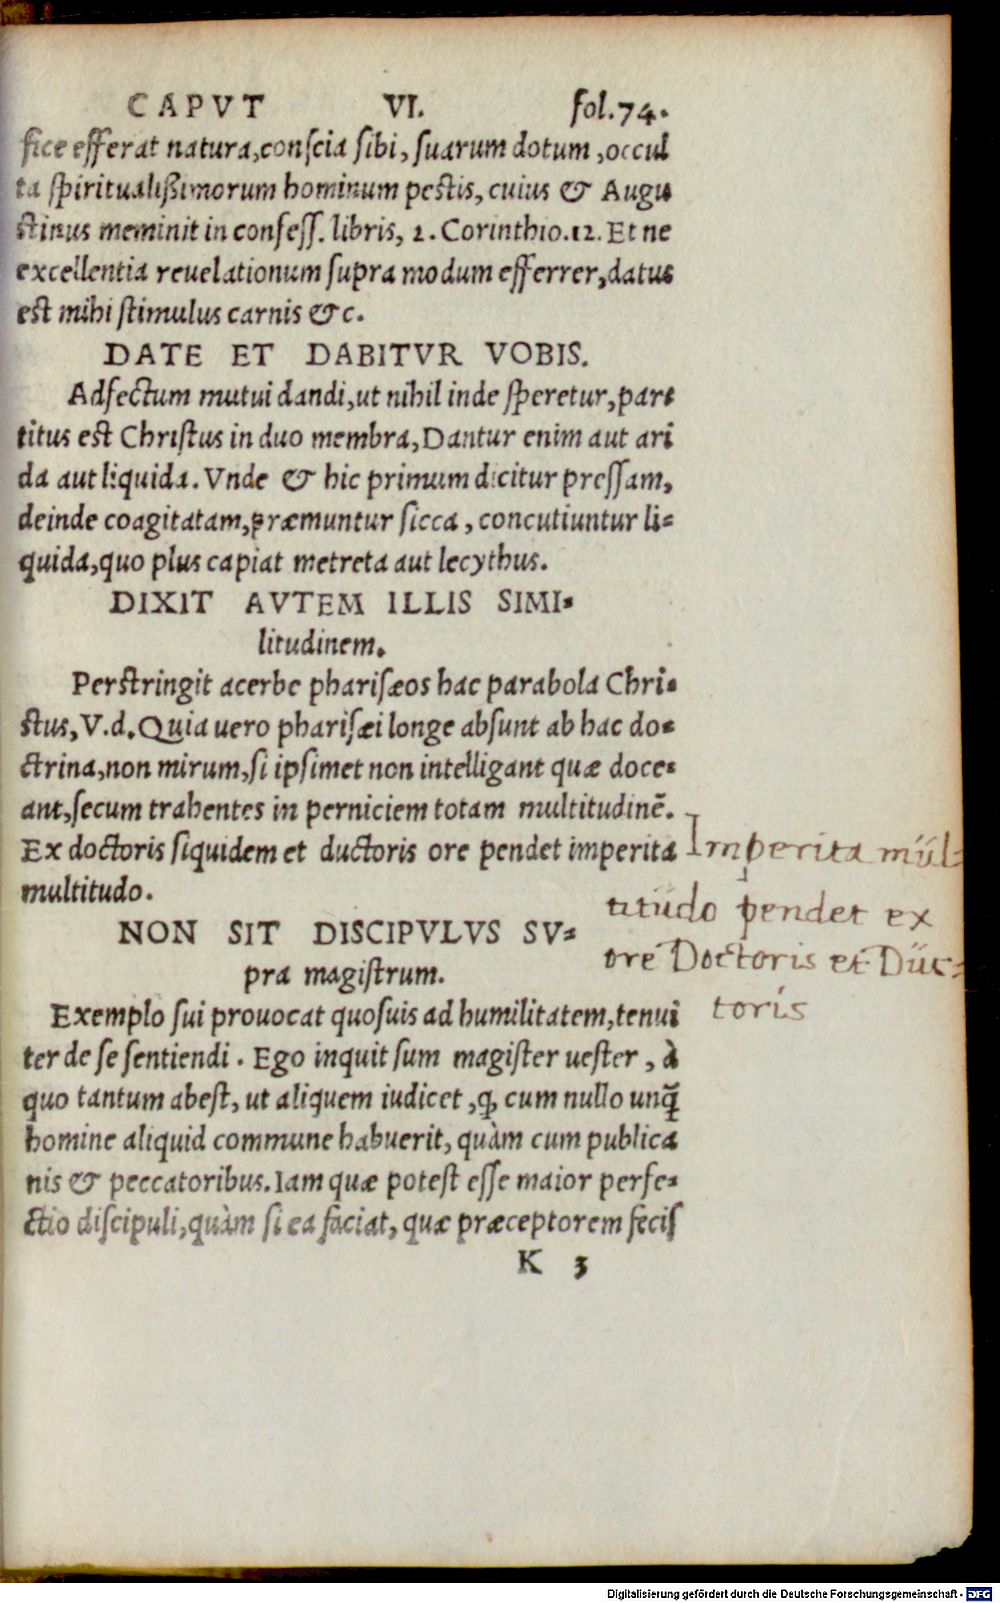 CAPVT VI. fol.74.
fice efferat natura,conscia sibi, suarum dotum ,occul
ta spiritualißimorum hominum pestis, cuius & Augu
stinus meminit in confess. libris, 2. Corinthio.12. Et ne
excellentia reuelationum supra modum efferrer,datus
est mihi stimulus carnis &c.
DATE ET DABITVR VOBIS.
Adfectum mutui dandi,ut nihil inde speretur,par-
titus est Christus in duo membra,Dantur enim aut ari
da aut liquida. Vnde & hic primum dicitur pressam,
deinde coagitatam,præmuntur sicca , concutiuntur li-
quida,quo plus capiat metreta aut lecythus.
DIXIT AVTEM ILLIS SIMI-
litudinem.
Perstringit acerbe pharisæos hac parabola Chri-
stus, V.d. Quia uero pharisæi longe absunt ab hac do-
ctrina,non mirum,si ipsimet non intelligant quæ doce-
ant,secum trahentes in perniciem totam multitudinē.
Ex doctoris siquidem et ductoris ore pendet imperita
multitudo.
Imperita mül-
titüdo pendet ex
ore Doctoris et Düc-
toris
NON SIT DISCIPVLVS SV-
pra magistrum.
Exemplo sui prouocat quosuis ad humilitatem,tenui
ter de se sentiendi . Ego inquit sum magister uester , à
quo tantum abest, ut aliquem iudicet ,ꝙ cum nullo unꝗ̃
homine aliquid commune habuerit, quàm cum publica
nis & peccatoribus. Iam quæ potest esse maior perfe-
ctio discipuli,quàm si ea faciat, quæ præceptorem fecis
K 3
Digitalisierung gefördert durch die Deutsche Forschungsgemeinschaft - DFG